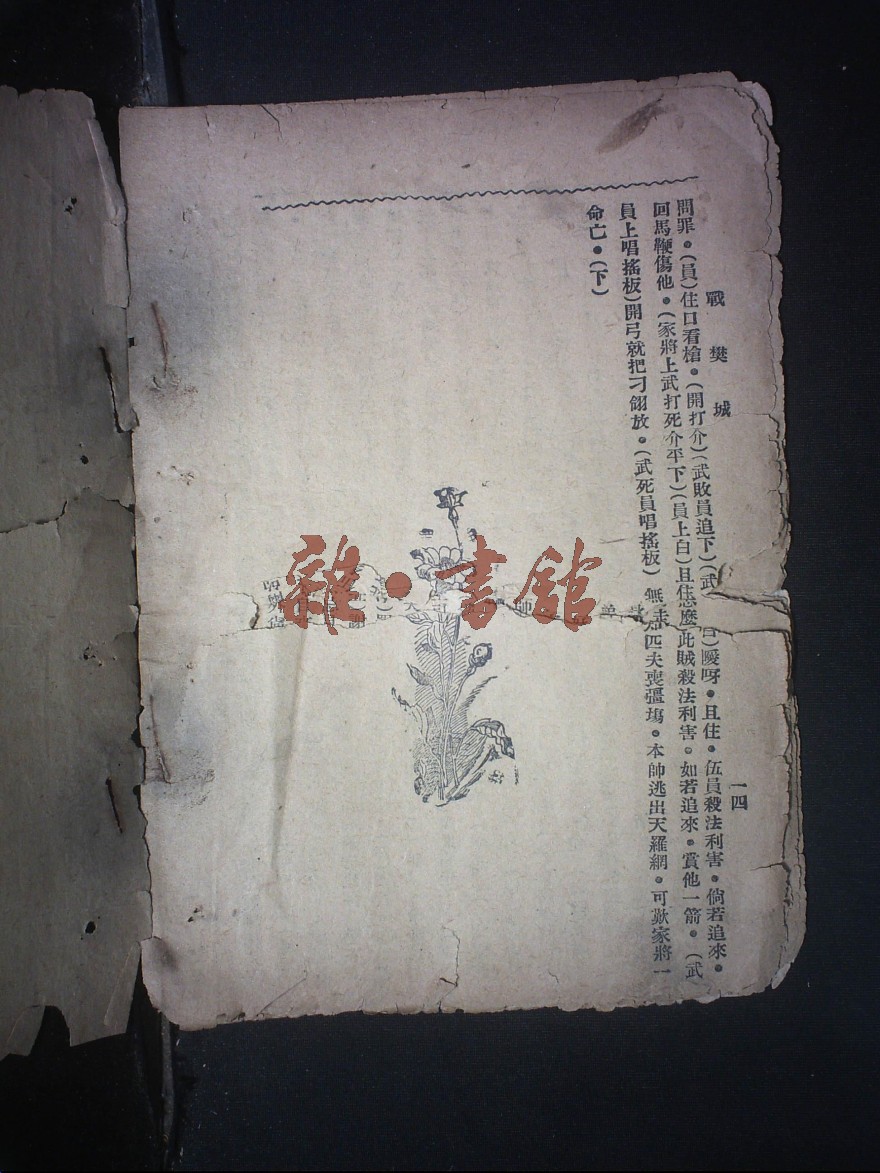 戰樊城
一四
問罪。(員)住口看槍。(開打介)(武敗員追下)(武 白)噯呀。且住。伍員殺法利害。倘若追來。
回馬鞭傷他。(家將上武打死介平下)(員上白)且住怎麼此賊殺法利害。如若追來。賞他一箭。(武
員上唱搖板)開弓就把刁翎放。(武死員唱搖板)無 匹夫喪疆塲。本帥逃出天羅網。可歎家將一
命亡。(下)
雜·書館